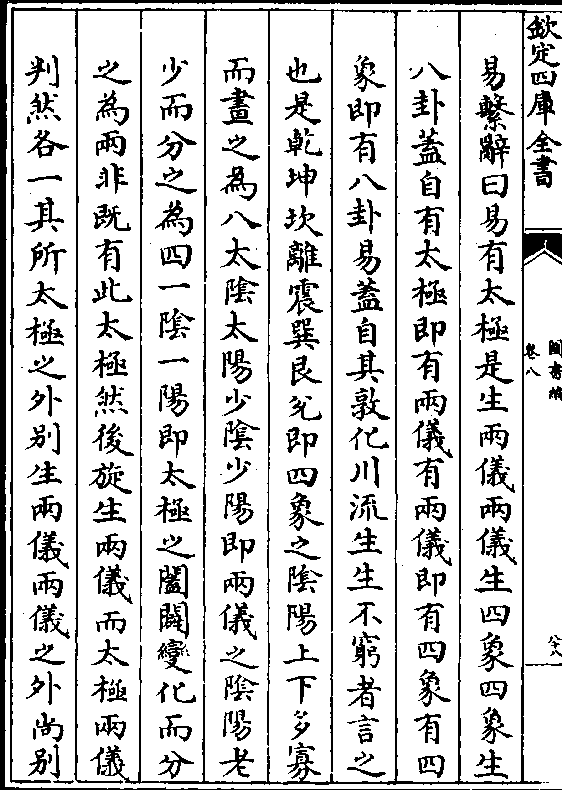 欽定四庫全書
圖書編
卷八
六十八
易繫辭曰易有太極是生兩儀兩儀生四象四象生
八卦蓋自有太極即有兩儀有兩儀即有四象有四
象即有八卦易蓋自其敦化川流生生不窮者言之
也是乾坤坎離震巽艮兌即四象之陰陽上下多寡
而畫之為八太陰太陽少陰少陽即兩儀之陰陽老
少而分之為四一陰一陽即太極之闔闢變化而分
之為兩非既有此太極然後旋生兩儀而太極兩儀
判然各一其所太極之外別生兩儀兩儀之外尚別